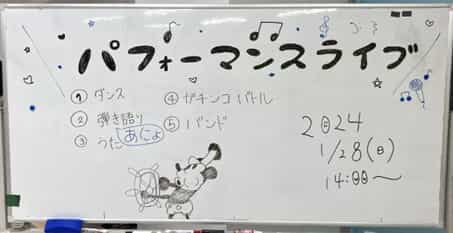 パフォーマンスライブ
① ダンス
② 弾き語り
③ うた あにょ
④ ガチンコバトル
⑤ バンド
2024
1/28(日)
14:00〜